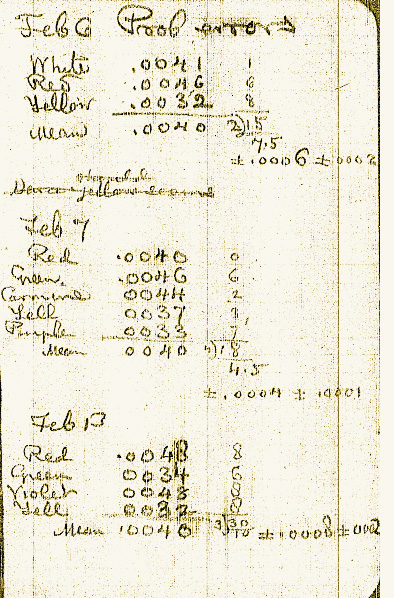 Feb 6 Prob errors
White .0041 1
Red .0046 6
Yellow .0032 8
Mean .0040 2)15
7.5
±.0006 ±.0002
Feb 7
Red .0040 0
Green. .0046 6
Carmine 0044 2
Yell 0037 3
Purple 0033 7
Mean 0040 4)18
4.5
±.0004 ± .0001
Feb 13
Red .0048 8
Green 0034
Violet 0048 8
Yell
Mean .0040 3)30
10 ±.0008 ±.0002